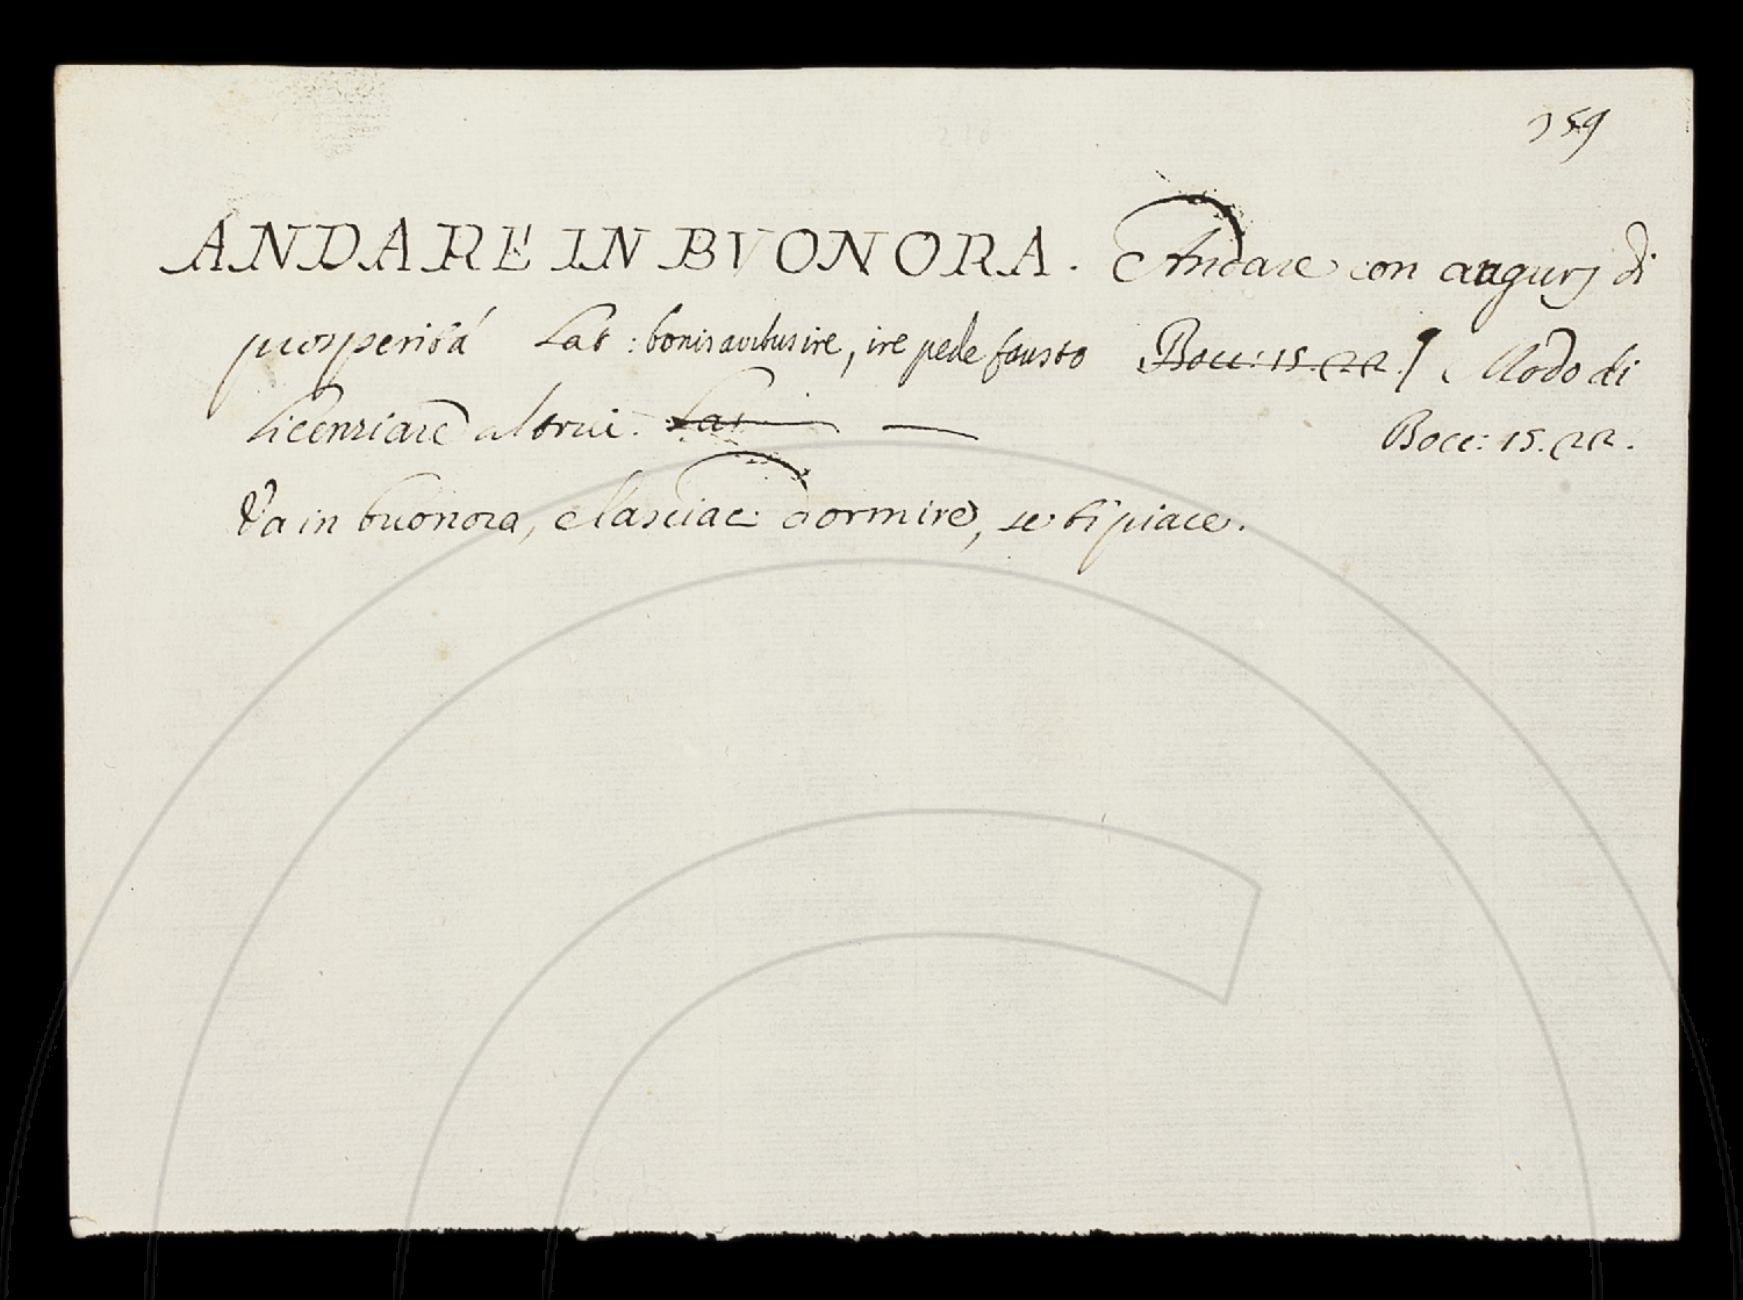 159
ANDARE IN BVONORA. Andare con augurj di
prosperità Lat: bonis avibus ire, ire pede fausto Bocc: 15. 22. Modo di
licenziare altrui. Lat
Bocc: 15. 22.
Va in buonora, e lasciaci dormire, se ti piace.